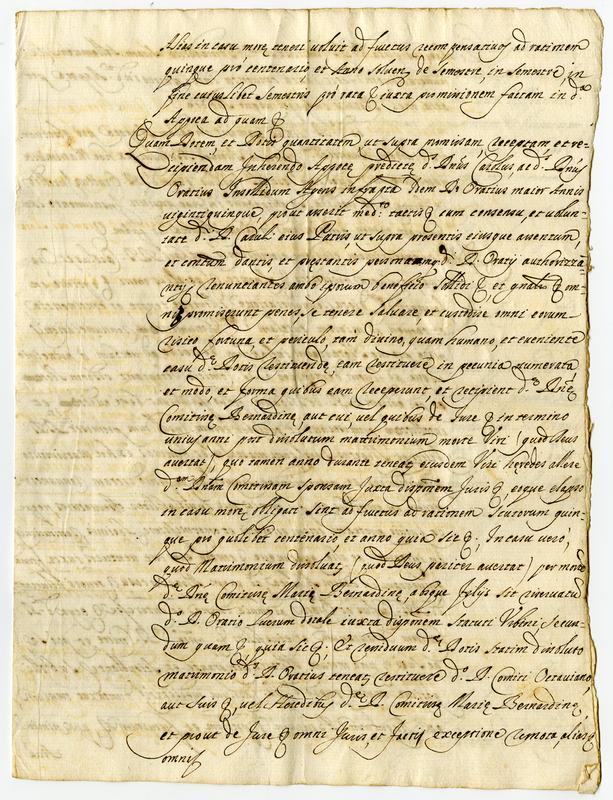 Alias in casu morę teneri voluit ad fructus recompensativos ad rationem
quinque pro centenario, et Anno solven. de semestre, in semestre in
fine cuiuslibet semestris pro rata & iuxta promissionem factam in d.ª
Appoca ad quam &
Quam Dotem, et Dotis quantitatem ut supra promissam receptam, et re-
cipiendam Inherendo Appocę predictę d. Carolus, ac d.
Oratius Insolidum Agens infrapta idem D. Oratius maior Annis
vigintiquinque, prout asserit med.º tactis & cum consensu, et volun-
tate d. D. Caroli eius Patris ut supra presentis eiusque assensum,
et consensum dantis, et prestantis personamq d. D. Oratij authoriza-
ntis, renunciantes ambo beneficio &, et &
promiserunt penes se tenere salvare, et custodire omni eorum
risico fortuna, et periculo, tam divino, quam humano, et eveniente
casu d.ę Dotis restituendę, eam restituere in pecunia numerata,
et modo, et forma quibus eam receperunt, et recipient d.ę
Comitissę Bernardinę, aut cui, vel quibus de Iure & in termino
unius anni post dissolutum matrimonium morte Viri (quod Deus
avertat), quo tamen anno durante teneat. eiusdem Viri heredes allere
d.am Comitissam sponsam iuxta disponem Juris &, eoque elapso
in casu morę obligati sint ad fructus ad rationem scutorum quin-
que pro quolibet centenario, et anno quia sic &, In casu vero,
quod Matrimonium dissolvat. (quod Deus pariter avertat) per morte
d.ę Comitissę Marię Bernardinę, absque filijs sit reservatu
d.º D. Oratio Lucrum dotale iuxta disponem Statuti Urbini secun-
dum quam &, quia sic &; Et residuum d.ę Dotis statim dissoluto
matrimonio d.s D. Oratius teneat. restituere d.º D. Comiti Octaviano,
aut suis &, vel Heredibus d.ę D. Comitissę Marię Bernardinę,
et prout de Iure & omni Iuris, et facti exceptione remota, alias &
omnis